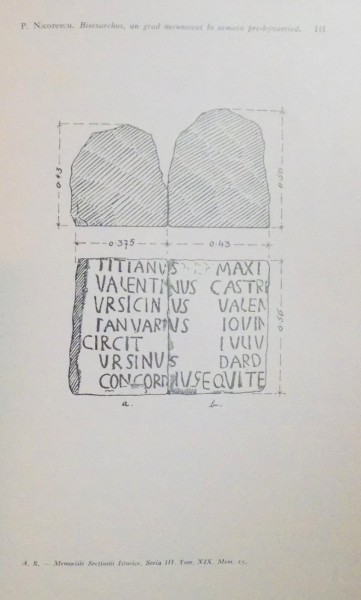 P. NICORESCU. Bisexarchus, un grad necunoscut în armata pre-byzantină. III
0·43
0·50
0·375
0·43
TITIANVS MAXI
VALENTINUS CASTRI
VRSICINUS VALEN
IANVARIUS IOVIN
CIRCIT IULIU
VRSINUS DARD
CONCORDIUS EQUITE
0·56
a. b.
A. R. — Memoriile Secțiunii Istorice, Seria III. Tom. XIX. Mem. 15.